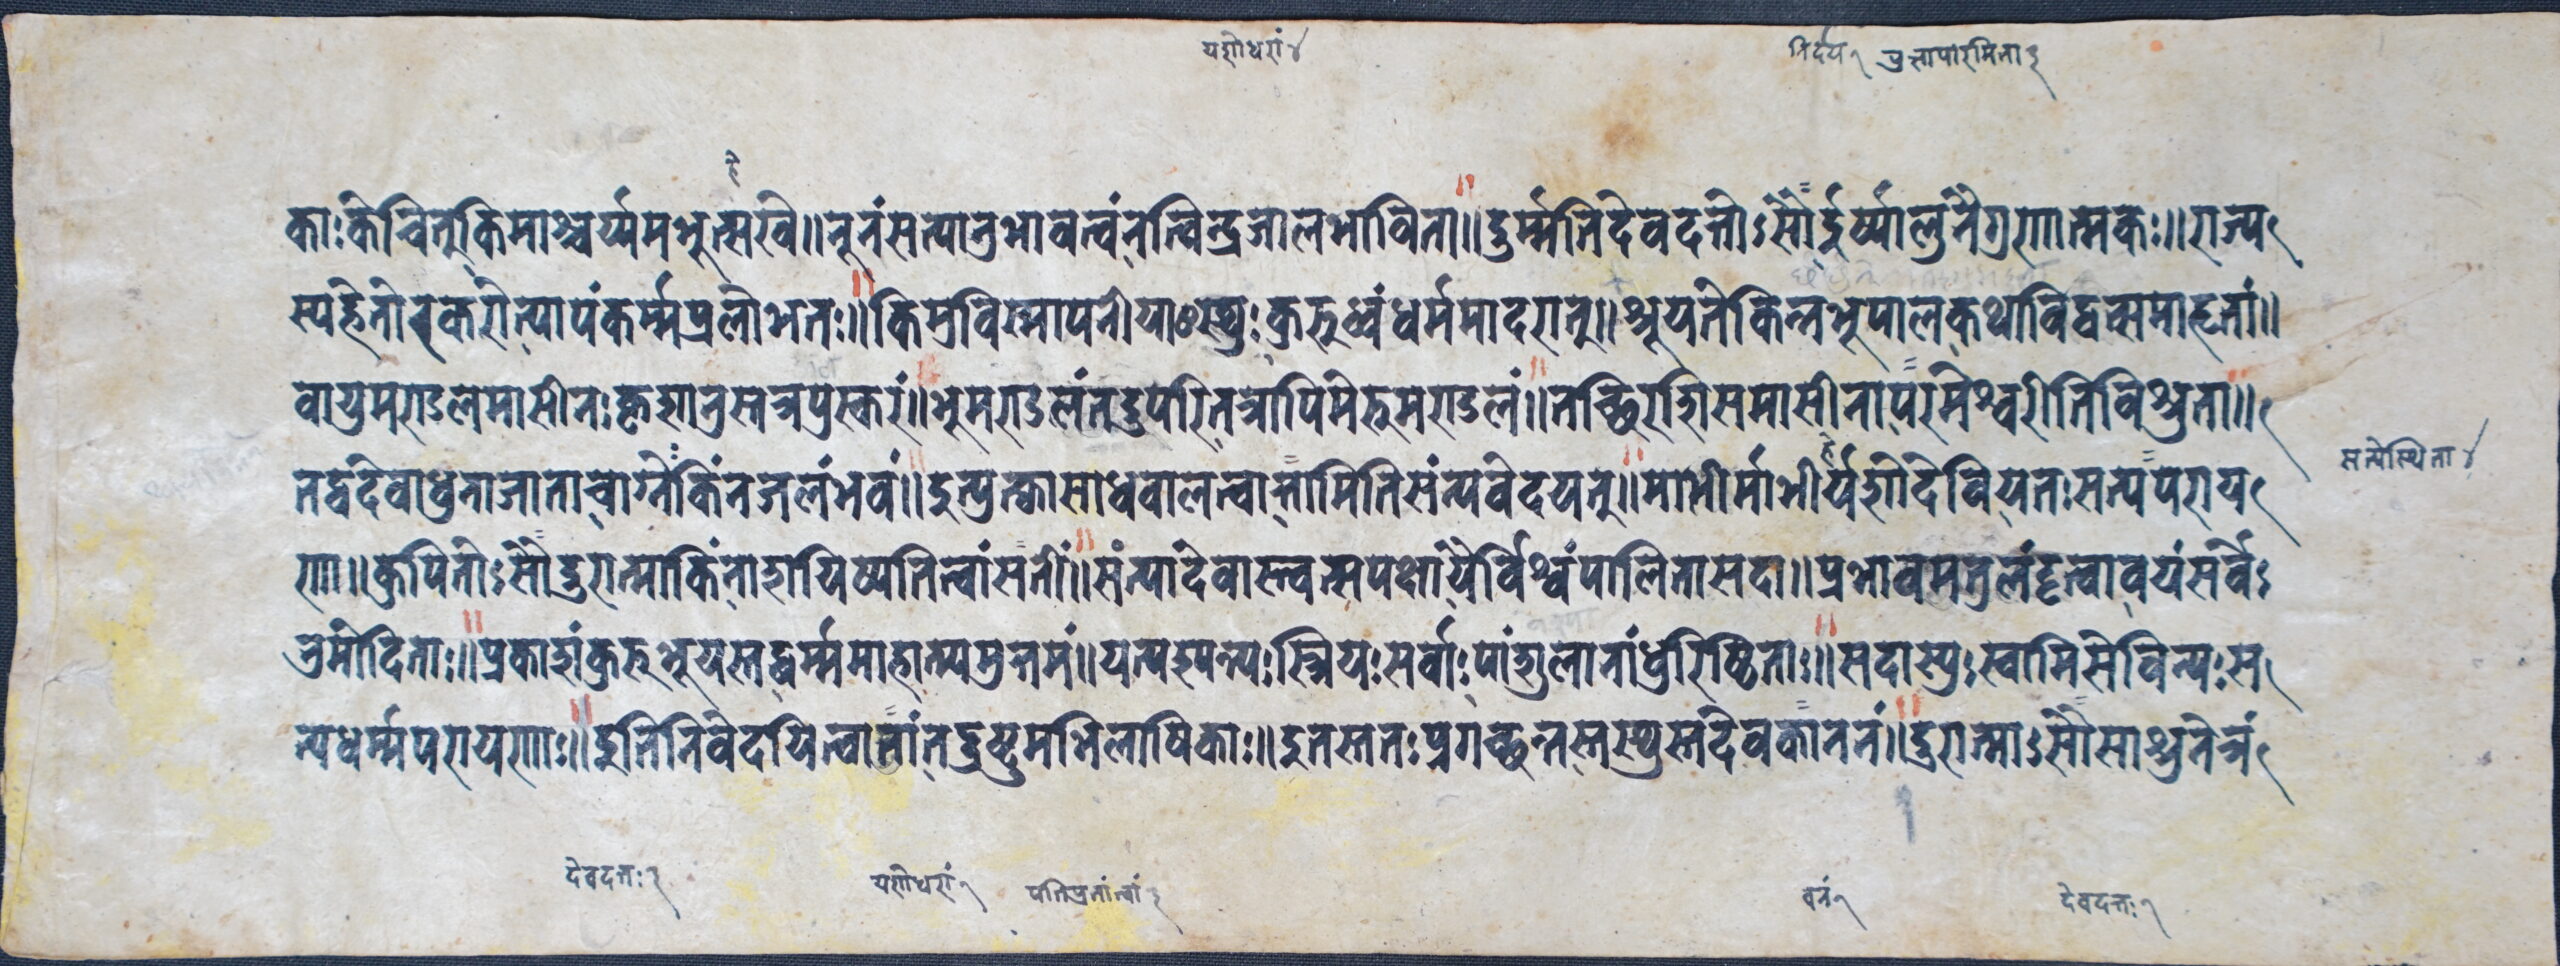 यशोधरां ४
निर्दय १ प्रज्ञापारमिता ३
काःकेचित्‌किमाश्चर्य्यमभूत्सखे॥नूनंसत्यानुभावत्वंनत्विन्द्रजालभाविता॥दुर्म्मतिर्देवदत्तोऽसौईर्ष्यालुर्नैर्गुणात्मकः॥राज्य
स्यहेतोरकरोत्पापंकर्म्मप्रलोभतः॥किमुविस्मापनीयाःस्युःकुरुध्वंधर्ममादरात्॥श्रूयतेकिन्नभूपालकथाविद्वत्समाहृतां॥
वायुमण्डलमासीनःकृशानुस्तत्रपुस्करं॥भूमण्डलंतदुपरितत्रापिमेरुमण्डलं॥तच्छिरशिसमासीनापरमेश्वरीतिविश्रुता॥
तद्वदेवाधुनाजाताचाग्नौकिंनजलंभवं॥इत्युत्क्वासाधवालत्वात्तामितिसंन्यवेदयत्॥माभीर्माभीर्यशोदेवियतःसत्यपराय
सत्येस्थिता ४
णा॥कुपितोऽसौदुरात्माकिंनाशयिष्यतित्वांसतीं॥संत्यांदेवास्त्वत्सपक्षायैर्विश्वंपालितासदा॥प्रभावमतुलंदृत्वावयंसर्वेऽ
नुमोदिताः॥प्रकाशंकुरुभूयस्तद्धर्म्ममाहात्म्यमुत्तमं॥यत्पश्यन्त्यःस्त्रियःसर्वाःपांशुलानांधुरिष्ठिताः॥सदास्युःस्वामिसेविन्यःस
त्यधर्म्मपरायणाः॥इतिनिवेदयित्वातांतद्द्रष्टुमभिलाषिकाः॥इतस्ततःप्रगच्छन्तस्तस्थुस्तदेवकाननं॥दुरात्माऽसौसाश्रुनेत्रं
देवदत्तः २
यशोधरां १
पतिव्रतांत्वां ३
वनं १
देवदत्तः १